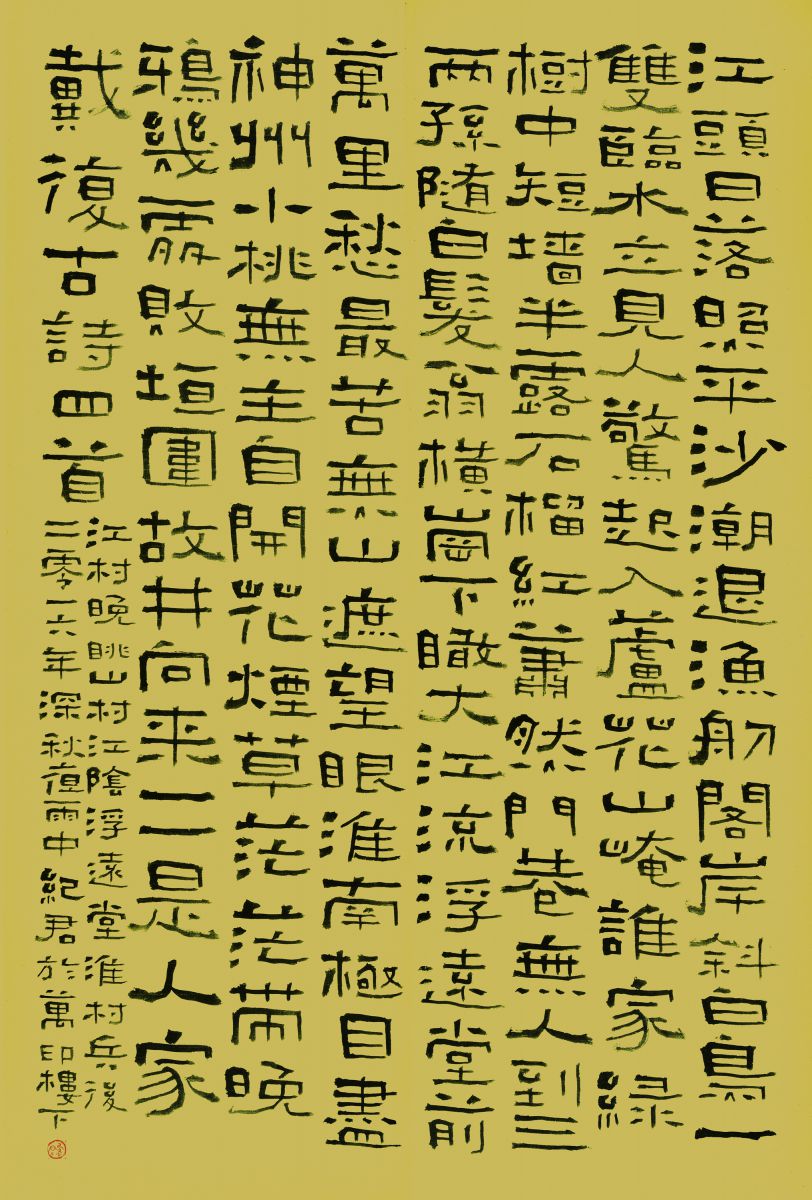 江頭日落照平沙潮退漁舠閣岸斜白鳥一
雙臨水立見人驚起入蘆花山崦誰家綠
樹中短墻半露石榴紅蕭然門巷無人到三
兩孫隨白髮翁橫崗下瞰大江流浮遠堂前
萬里愁最苦無山遮望眼淮南極目盡
神州小桃無主自開花煙草茫茫帶晚
鴉幾處敗垣圍故井向来一一是人家
戴復古詩四首
江村晚眺山村江陰浮遠堂淮村兵後
二零一六年深秋夜雨中紀君於萬印樓下